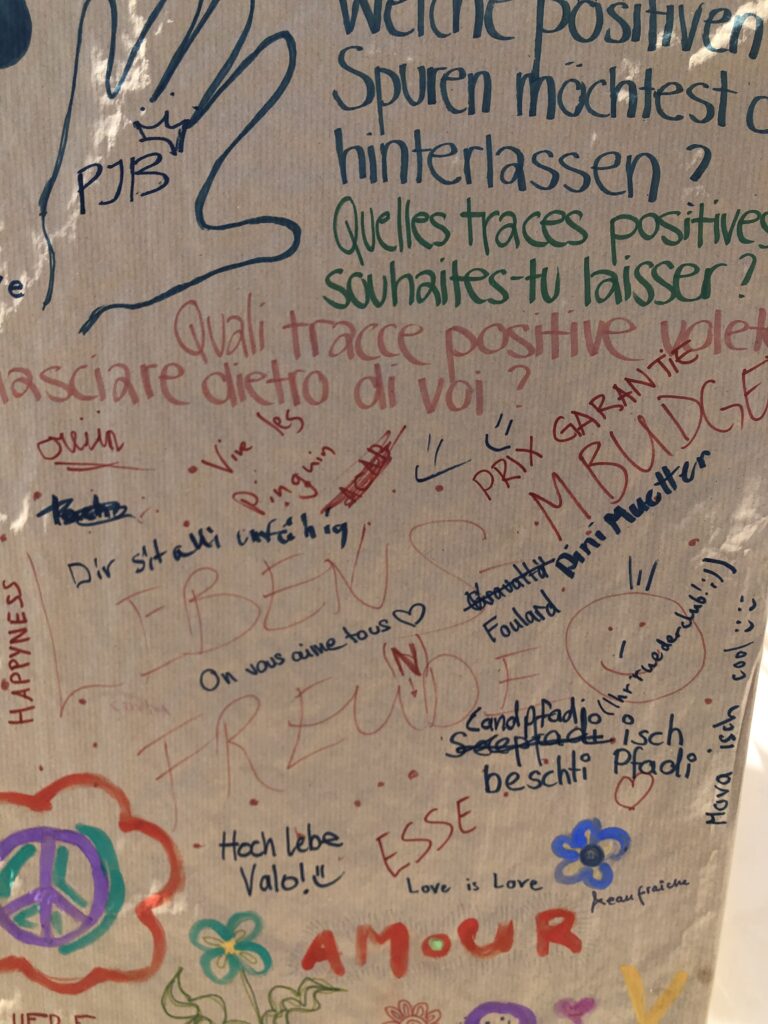 Welche positiven
Spuren möchtest d
hinterlassen?
PJB
Quelles traces positives
souhaites-tu laisser?
Quali tracce positive volet
lasciare dietro di voi?
PRIX GARANTIE
M BUDGE
Vive les
Pinguin
Dini Muetter
Dir sit alli unfähig
Foulard
LEBENS
FREUDE
HAPPYNESS
On vous aime tous ♡
(N)
(Ihr rueder club! :))
Landpfadi
Seepfadi isch
beschti Pfadi
Mova isch cool
Hoch lebe
Valo!
ESSE
Love is Love
AMOUR
V